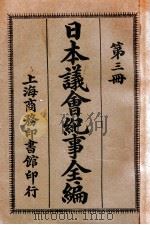 第三冊
日本議會紀事全編
上海商務印書館印行